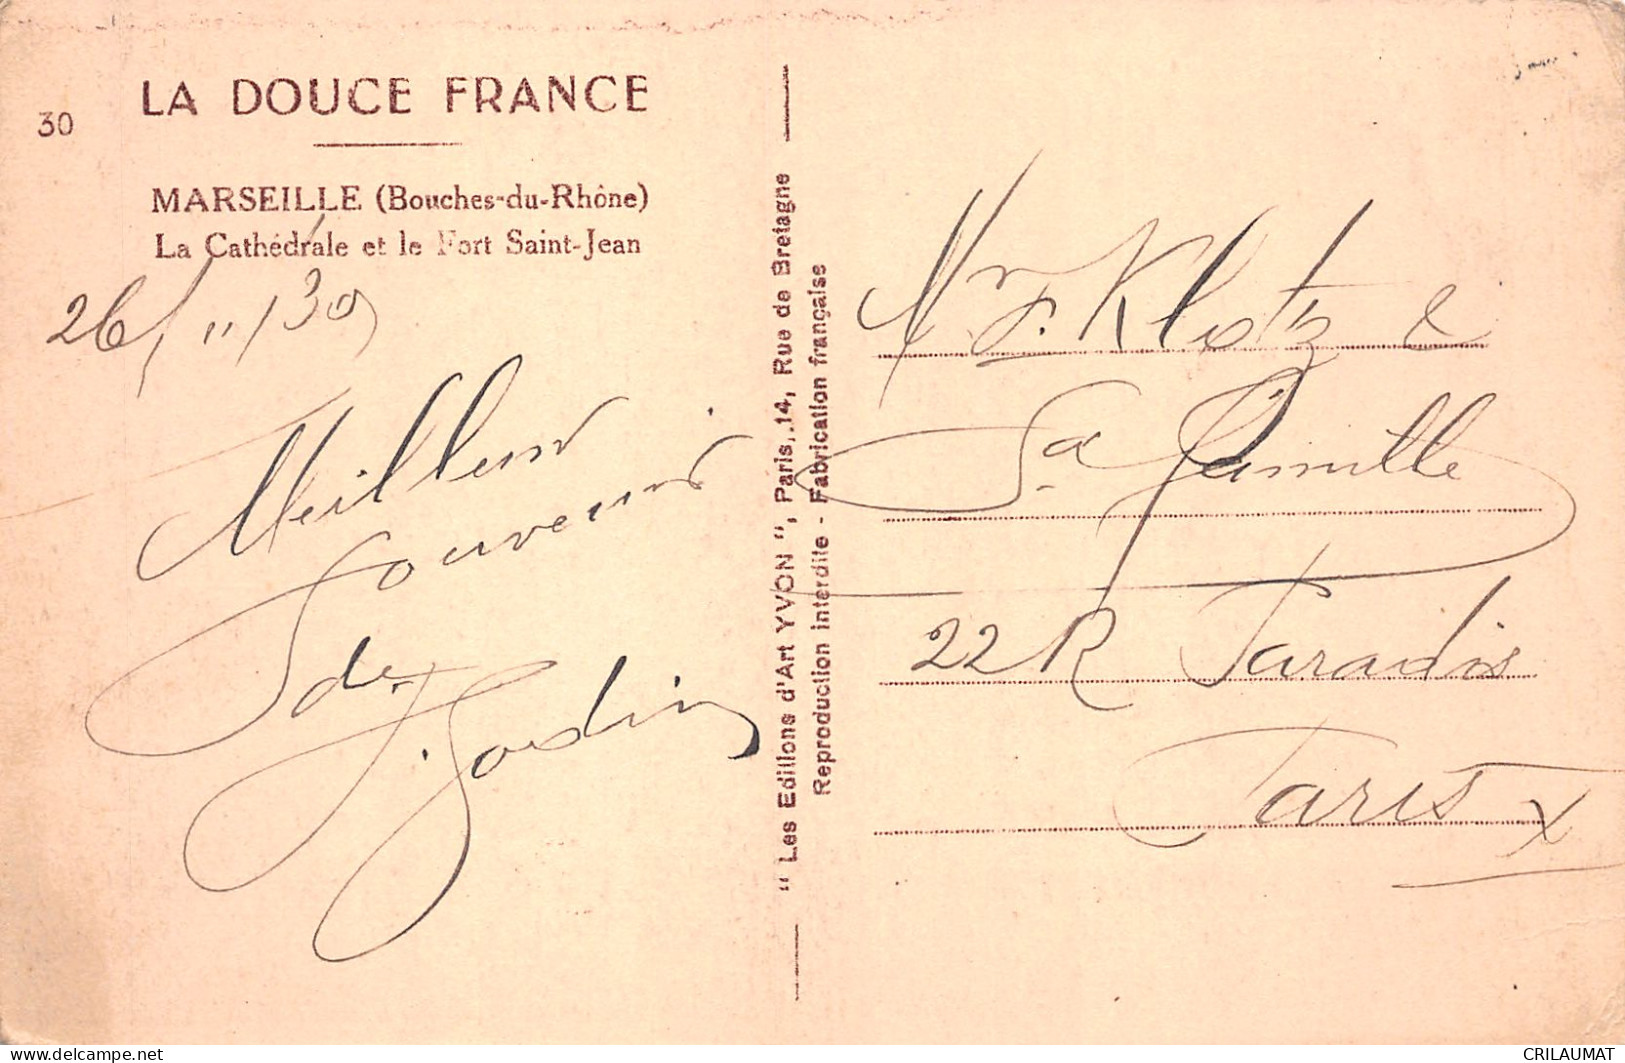 LA DOUCE FRANCE
30
MARSEILLE (Bouches-du-Rhône)
La Cathédrale et le Fort Saint-Jean
26/11/30
Meilleur
Souvenir
de
J. Jardin
" Les Editions d'Art YVON ", Paris, 14, Rue de Bretagne
Reproduction interdite - Fabrication française
Mr J. Klotz &
Sa famille
22 R Paradis
Paris X
delcampe.net
CRILAUMAT